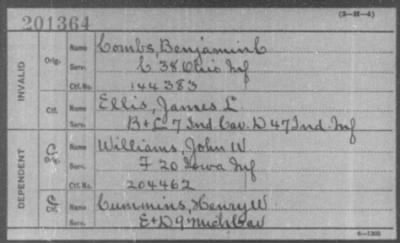 (3-M-4)
201364
INVALID
Orig.
Name Combs, Benjamin C
Serv. C 38 Ohio Inf
Ctf. No. 144383
Ctf.
Name Ellis, James L
Serv. B+C 7 Ind Cav. D 47 Ind. Inf
DEPENDENT
C
Orig.
Name Williams, John W
Serv. F 20 Iowa Inf
Ctf. No. 204462
C
Ctf.
Name Cummins, Henry W
Serv. E+D 9 Mich Cav